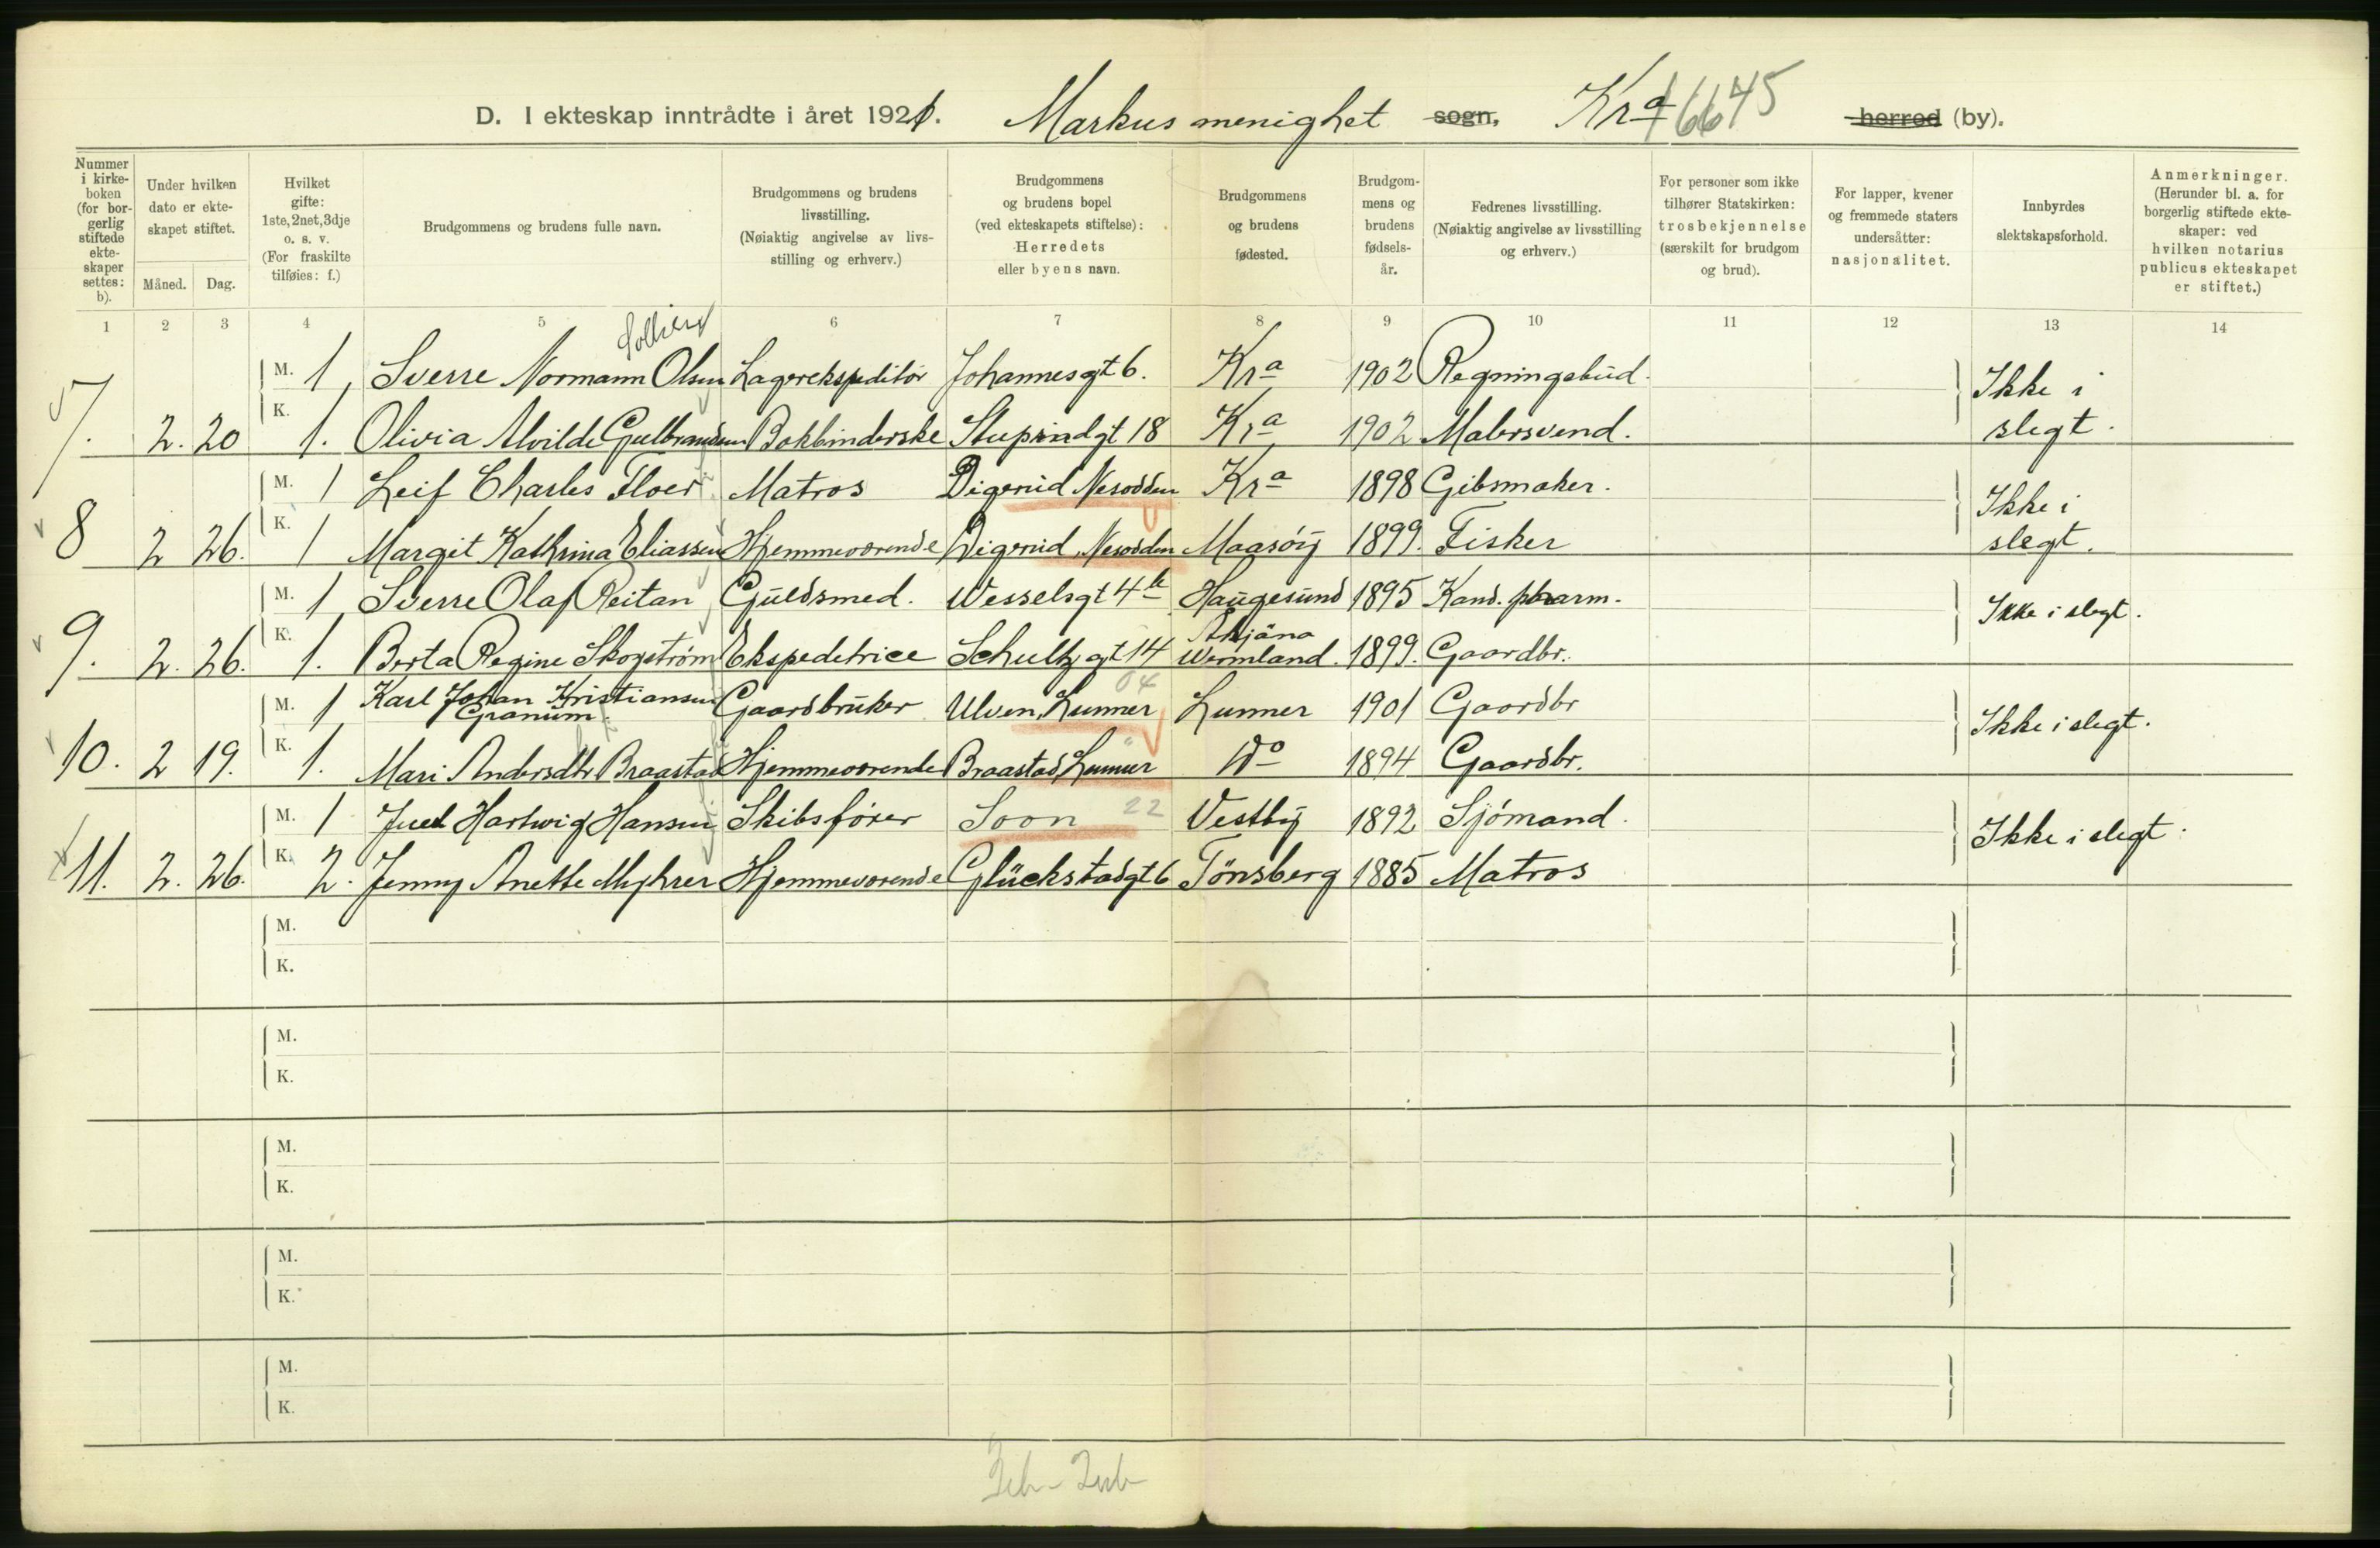 D. I ekteskap inntrådte i året 1921. Markus menighet sogn, Kra 16645 herred (by).
Nummer i kirke-boken (for bor-gerlig stiftede ekte-skaper settes: b).
Under hvilken dato er ekte-skapet stiftet.
Måned. Dag.
Hvilket gifte: 1ste, 2net, 3dje o. s. v. (For fraskilte tilføies: f.)
Brudgommens og brudens fulle navn.
Brudgommens og brudens livsstilling. (Nøiaktig angivelse av livs-stilling og erhverv.)
Brudgommens og brudens bopel (ved ekteskapets stiftelse): Herredets eller byens navn.
Brudgommens og brudens fødested.
Brudgom-mens og brudens fødsels-år.
Fedrenes livsstilling. (Nøiaktig angivelse av livsstilling og erhverv.)
For personer som ikke tilhører Statskirken: trosbekjennelse (særskilt for brudgom og brud).
For lapper, kvener og fremmede staters undersåtter: nasjonalitet.
Innbyrdes slektskapsforhold.
Anmerkninger. (Herunder bl. a. for borgerlig stiftede ekte-skaper: ved hvilken notarius publicus ekteskapet er stiftet.)
1 2 3 4 5 6 7 8 9 10 11 12 13 14
Solberg
M. 1, Sverre Normann Olsen Lagerekspeditör Johannesgt 6. Kra 1902 Regningsbud. Ikke i
7. 2. 20 K. 1. Olivia Alvilde Gulbrandsen Bokbinderske Stupindgt 18 Kra 1902 Malersvend. slegt.
M. 1 Leif Charles Floer Matros Digerud Nesodden Kra 1898 Gibsmaker. Ikke i
8 2 26. K. 1 Margit Kathrina Eliassen Hjemmeværende Digerud, Nesodden Maasöy 1899. Fisker slegt.
M. 1, Sverre Olaf Reitan Guldsmed. Wesselsgt 4b Haugesund 1895 Kand. pharm. Ikke i slegt.
9. 2. 26. K. 1. Berta Regine Skogström Ekspedetrice Schultzgt 14 Wermland. 1899. Gaardbr.
04
M. 1 Karl Johan Kristiansen Granum. Gaardbruker Ulven, Lunner Lunner 1901 Gaardbr Ikke i slegt.
10. 2 19. K. 1. Mari Andersdtr Braastad Hjemmeværende Braastad, Lunner Do 1894 Gaardbr.
M. 1 Juel Hartwig Hansen Skibsförer Soon 22 Vestby 1892 Sjömand. Ikke i slegt.
11. 2. 26. K. 2. Jenny Anette Myhrer Hjemmeværende Glückstadgt 6 Tönsberg 1885 Matros
M.
K.
M.
K.
M.
K.
M.
K.
M.
K.